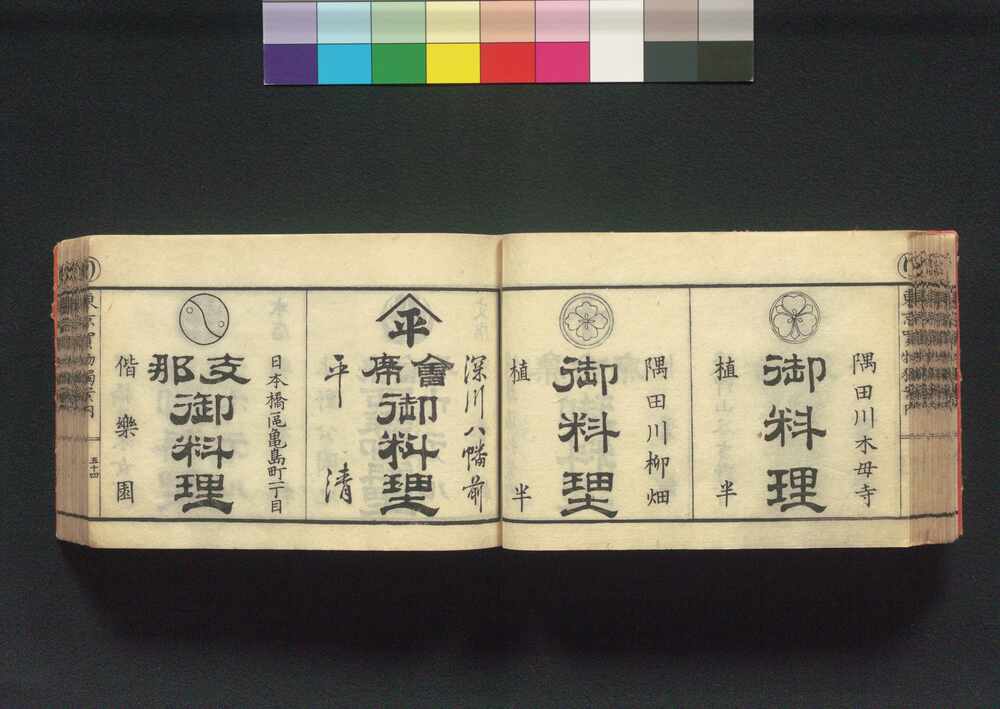 隅田川木母寺
御料理
植半
隅田川柳畑
御料理
植半
深川八幡前
平
會席
御料理
平清
日本橋區亀島町一丁目
支那
御料理
偕樂園
東京買物獨案内
五十四